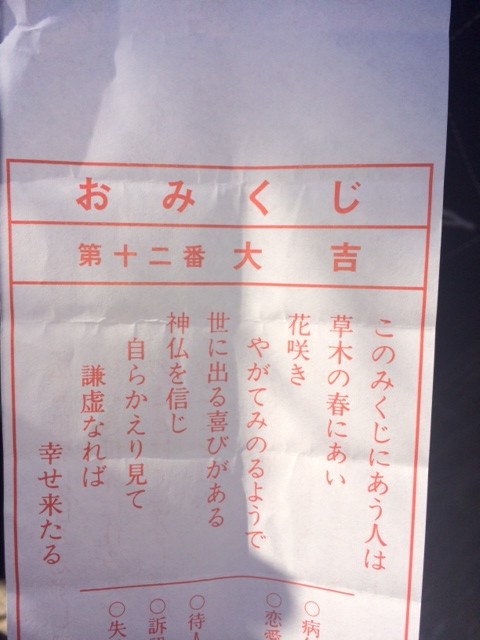 おみくじ
第十二番 大吉
このみくじにあう人は
草木の春にあい
花咲き
やがてみのるようで
世に出る喜びがある
神仏を信じ
自らかえり見て
謙虚なれば
幸せ来たる
○病
○恋愛
○待人
○訴訟
○失